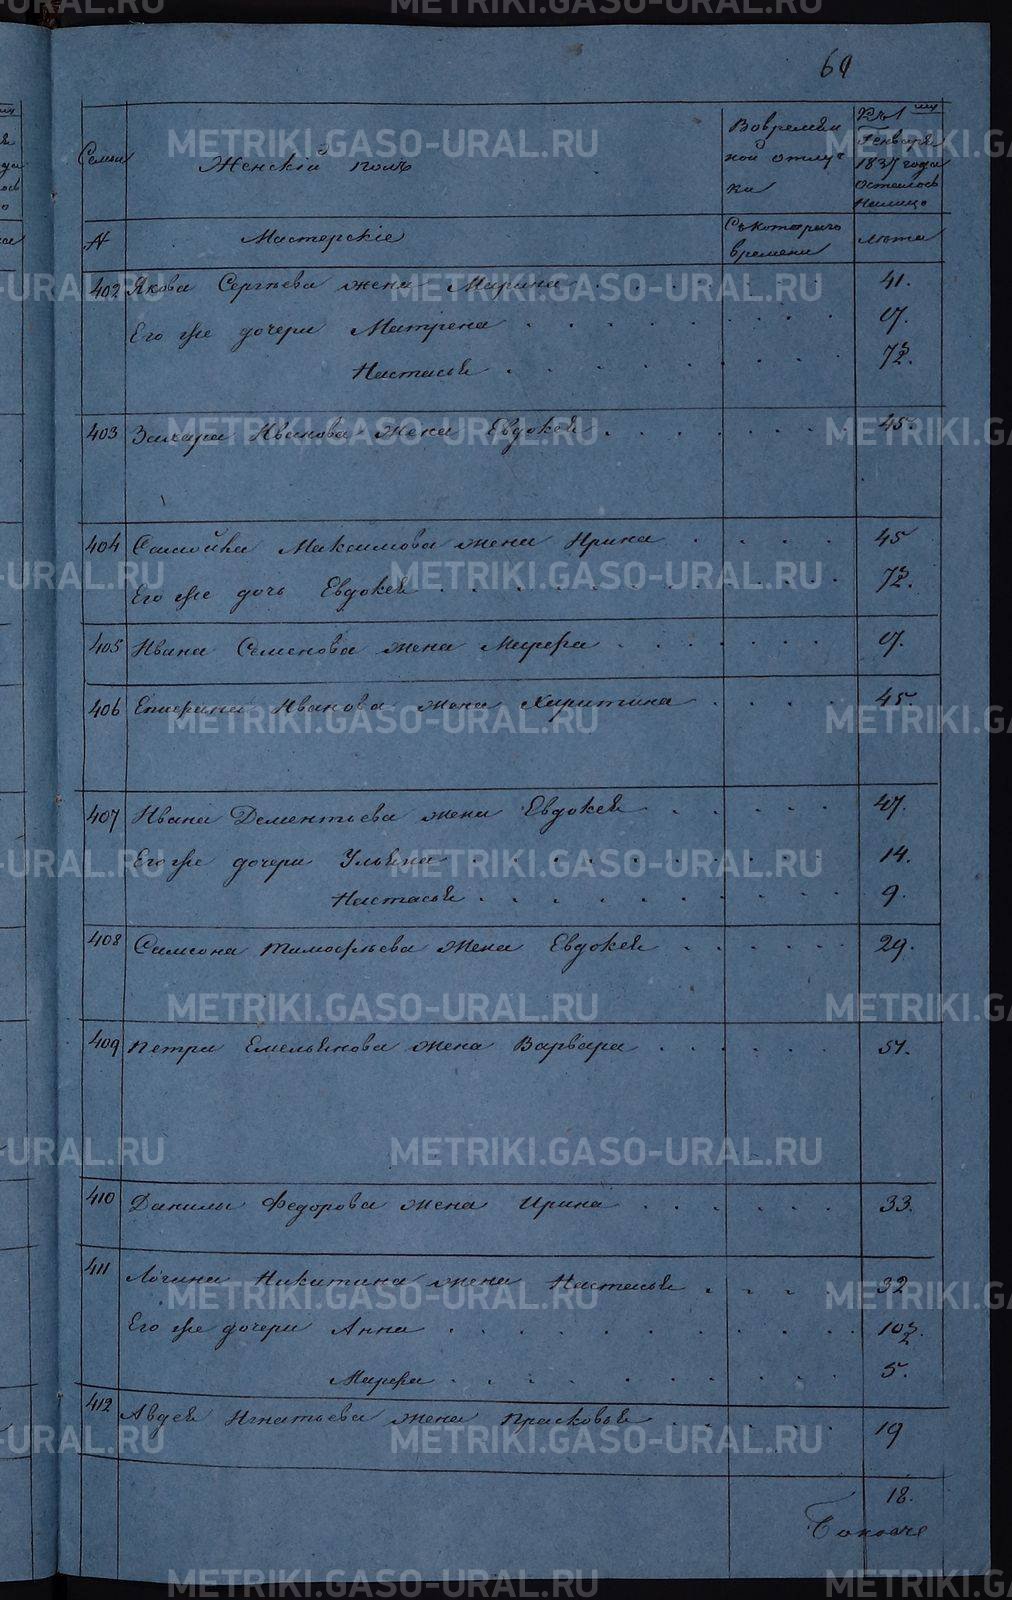 69
Семьи
Женскій полъ
Вовремян
ной отлуч
ки
Къ 1му
Генваря
1837 года
осталось
налицо
№
Мастерскіе
Съкотораго
времени
лѣта
402 Якова Сергѣева жена Марина 41.
Его же дочери Матрена
Настасья
403 Захара Иванова жена Евдокея 45.
404 Самойла Максимова жена Ирина 45
Его же дочь Евдокея
405 Ивана Семенова жена Марфа
406 Иванова жена Харитина 45.
407 Ивана Дементьева жена Евдокея 47.
Его же дочери Ульяна 14.
Настасья 9.
408 Самсона Тимофѣева жена Евдокея 29.
409 Петра Емельянова жена Варвара 51.
410 Данилы Федорова жена Ирина 33.
411 Логина Никитина жена Настасья 32
Его же дочери Анна
Марфа 5.
412 Авдея Игнатьева жена Прасковья 19
18.
METRIKI.GASO-URAL.RU